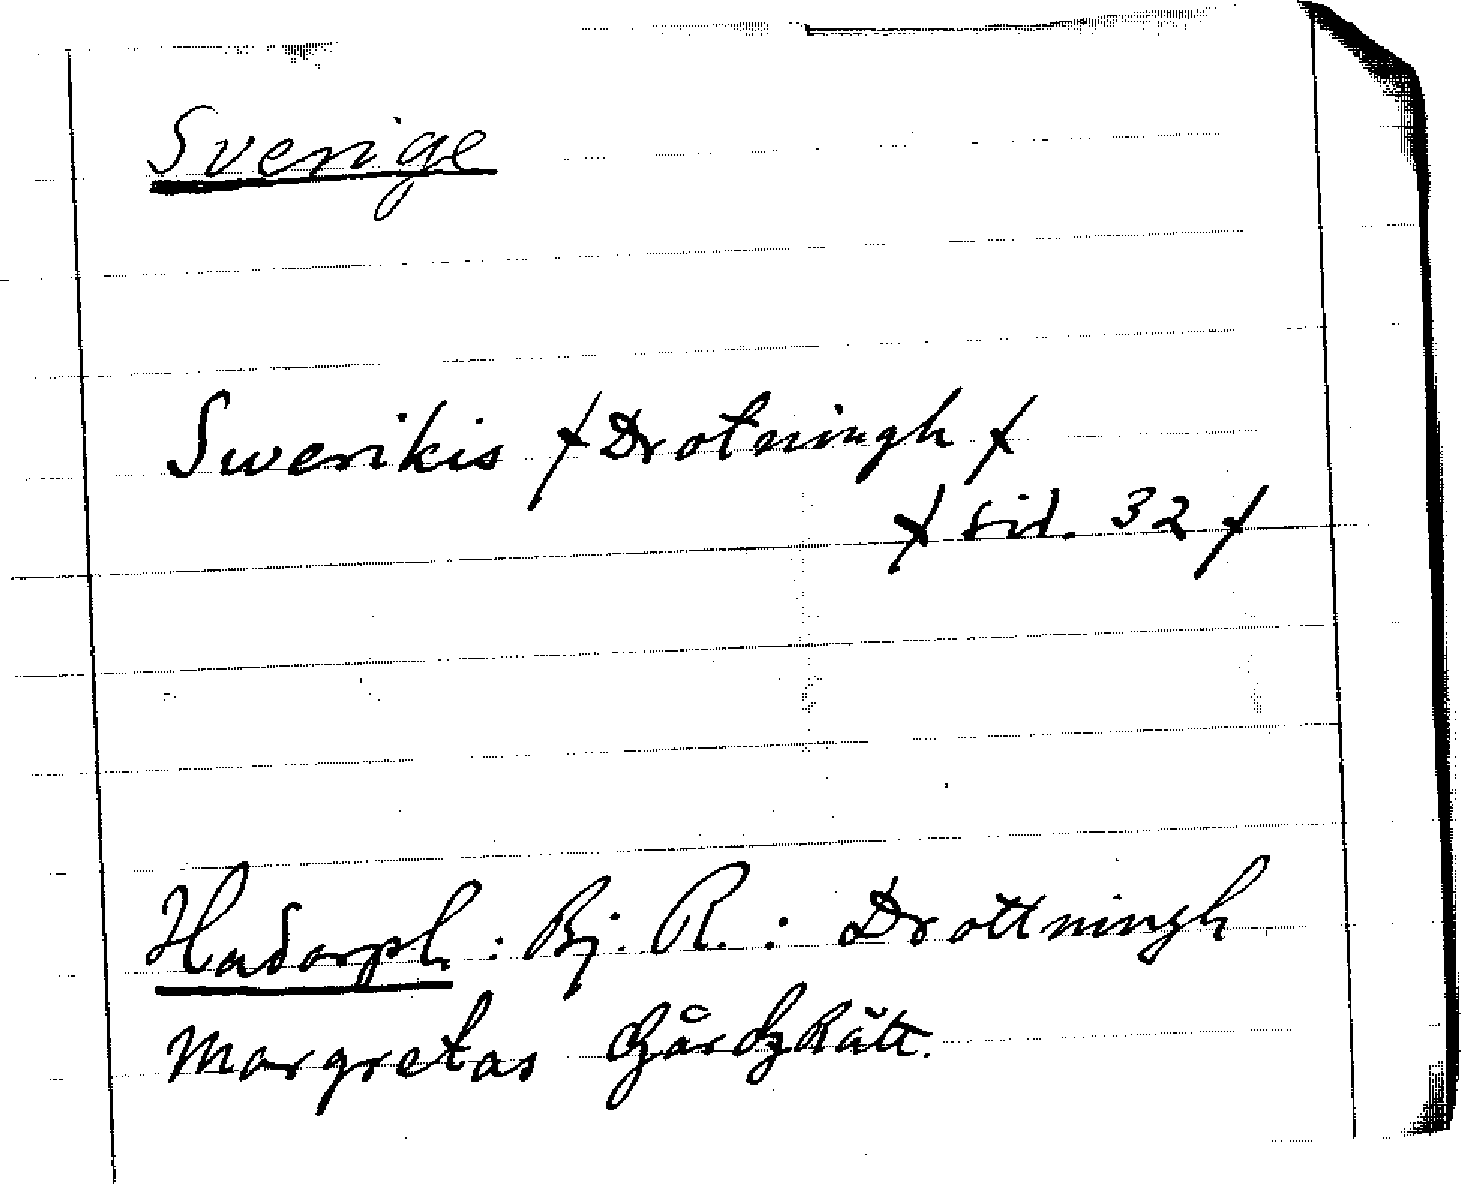 Sverige
Swerikis / Drotningh /
/ sid. 32 /
Hadorph : Bj. R. : Drottningh
Margretas GårdzRätt.